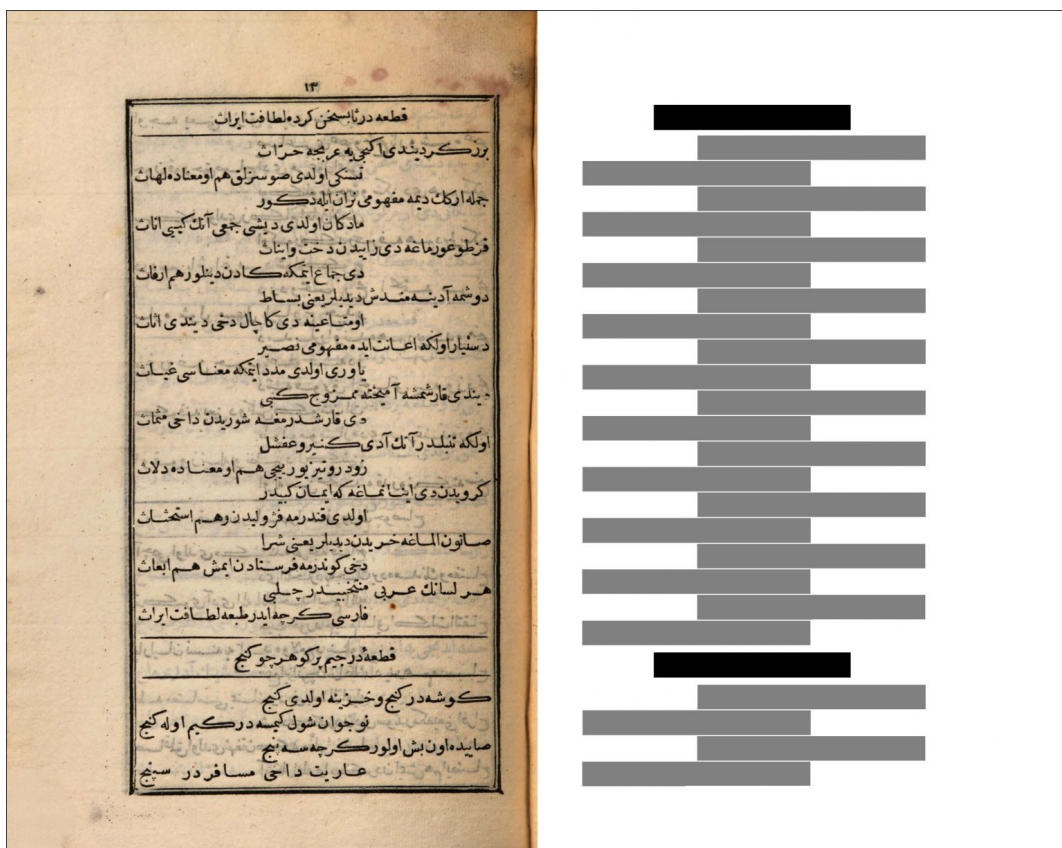 ١٣
قطعه در ثا بسخن كرده لطافت ايراث
برزكر ديندى اكنجى يه عربجه حرّاث
تسنكى اولدى صوسزلق هم او معناده لهاث
جمله اركك ديمه مفهومى نران ايله ذكور
مادكان اولدى ديشى جمعى آنك كيبى اناث
قز طوغورماغه دى زاييدن دخت و ايناث
دى جماع ايتمكه كادن دينلور هم ارفاث
دوشمه آدينه مندش ديديلر يعنى بساط
اومتاعينه دى كاچال دخى ديندى اثاث
دستيار اولكه اعانت ايده مفهومى نصير
ياورى اولدى مدد ايتمكه معناسى غياث
ديندى قارشمشه آميخته ممزوج كبى
دى قارشدرمغه شوريدن داخى مثماث
اولكه تنبلدر آنك آدى و عفشل
زود رو تيز يوريجى هم او معناده دلاث
كرويدن دى اينانماغه كه ايمان كبيدر
اولدى قندرمه فژوليدن و هم استحثاث
صاتون الماغه خريدن ديديلر يعنى شرا
دخى كوندرمه فرستادن ايمش هم ابعاث
هر لسانك عربى منتخبيدر چلبى
فارسى كرچه ايدر طبعه لطافت ايراث
قطعه در جيم پر كوهر چو كنج
كوشه در كنج و خزينه اولدى كنج
نوجوان شول كيمسه در كيم اوله كنج
صاييده اون بش اولور كرچه سه پنج
عاريت داخى مسافر در سپنج